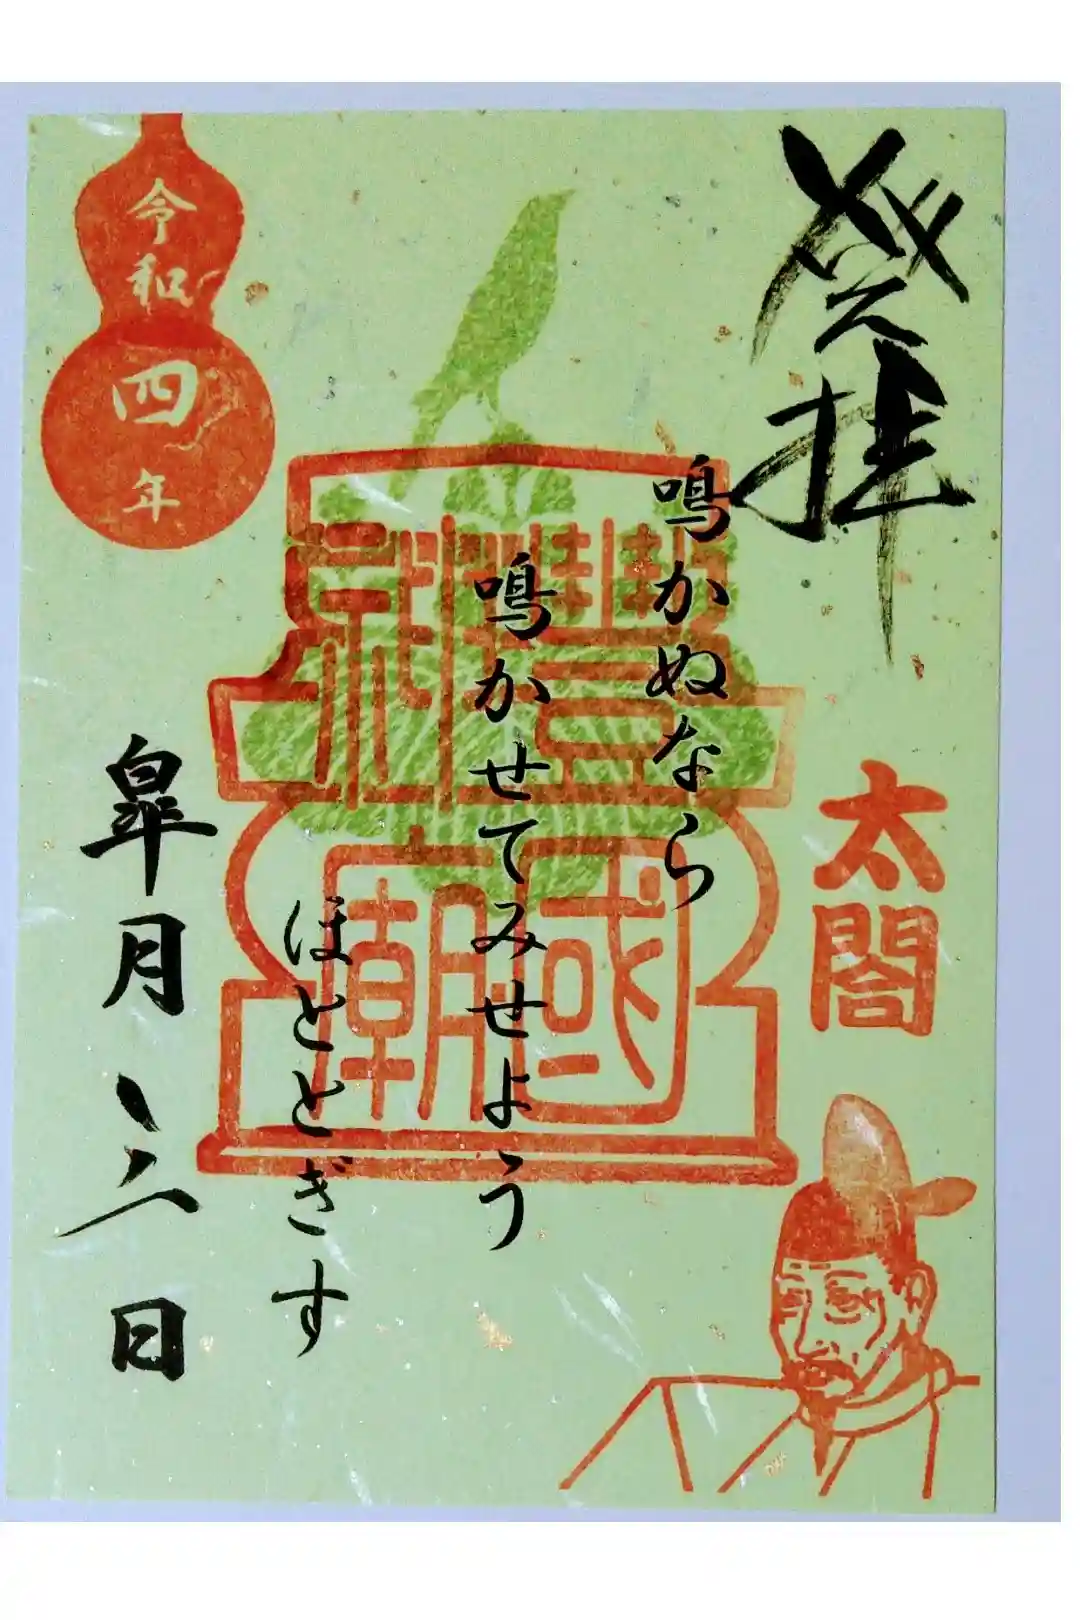 登拝
太閤
鳴かぬなら
鳴かせてみせよう
ほととぎす
豊國
神朝
令和四年
皐月
日